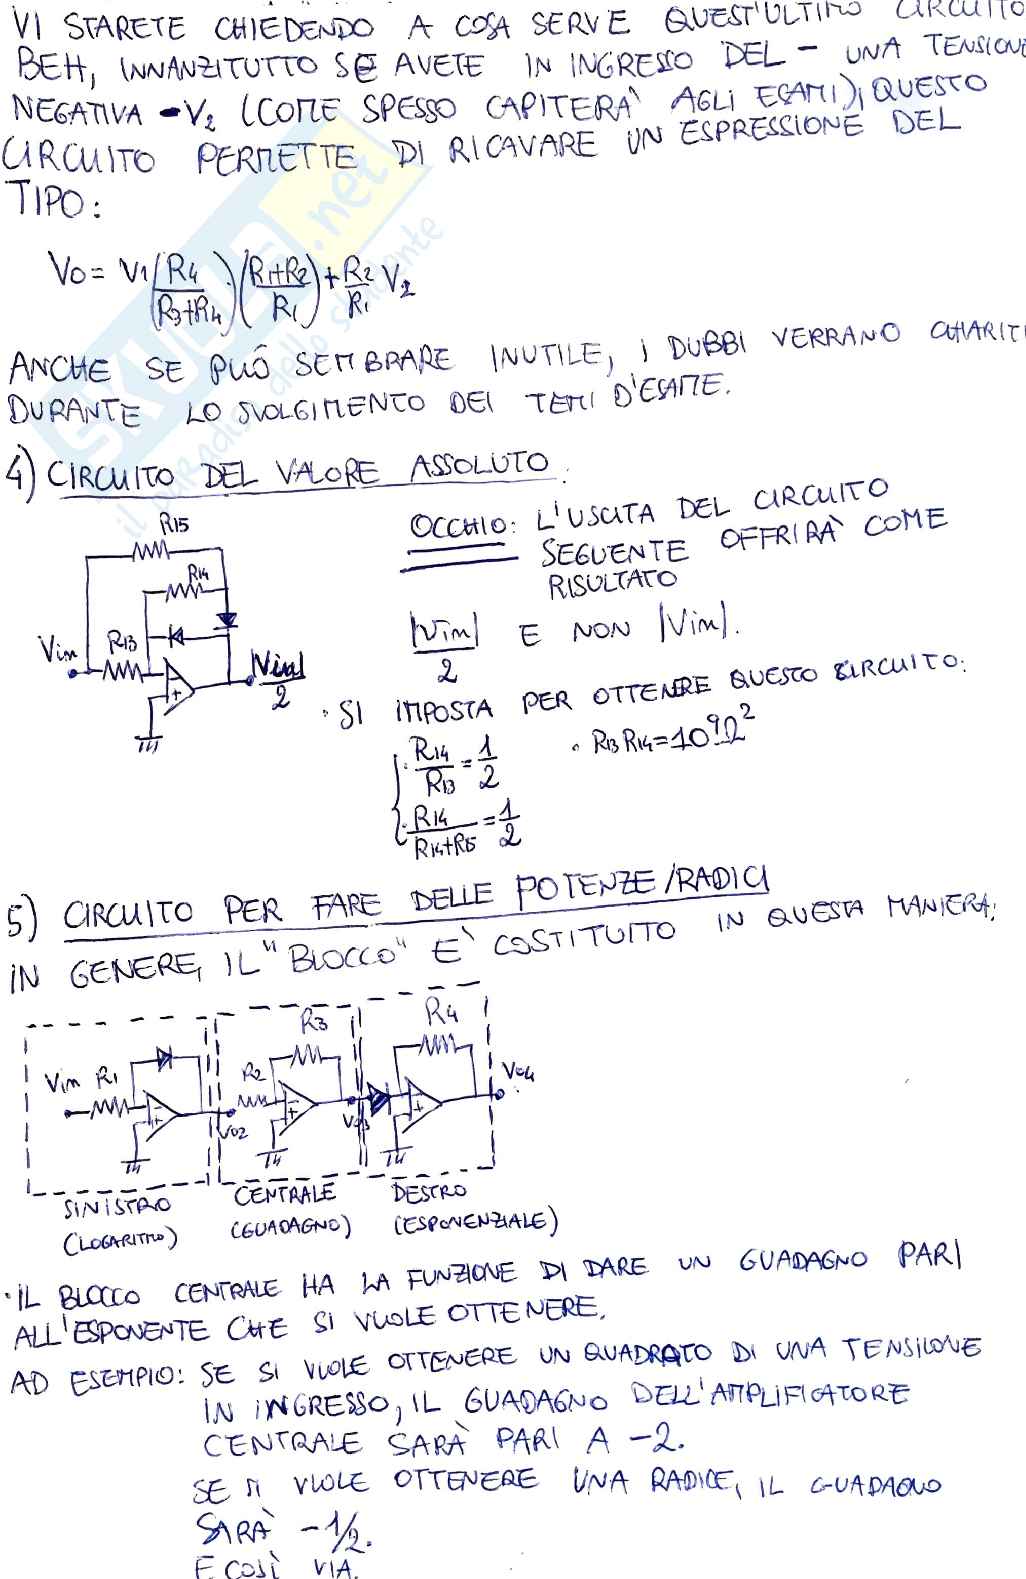 VI STARETE CHIEDENDO A COSA SERVE QUEST'ULTIMO CIRCUITO
BEH, INNANZITUTTO SE AVETE IN INGRESSO DEL - UNA TENSIONE
NEGATIVA -V2 (COME SPESSO CAPITERA' AGLI ESAMI), QUESTO
CIRCUITO PERMETTE DI RICAVARE UN ESPRESSIONE DEL
TIPO:
Vo = V1 (R4/(R3+R4)) · ((R1+R2)/R1) + R2/R1 V2
ANCHE SE PUÒ SEMBRARE INUTILE, I DUBBI VERRANO CHIARITI
DURANTE LO SVOLGIMENTO DEI TEMI D'ESAME.
4) CIRCUITO DEL VALORE ASSOLUTO.
R15
R14
Vin R13
|Vin|/2
OCCHIO: L'USCITA DEL CIRCUITO
SEGUENTE OFFRIRA' COME
RISULTATO
|Vin|/2 E NON |Vin|.
· SI IMPOSTA PER OTTENERE QUESTO CIRCUITO:
· R14/R13 = 1/2 · R13 R14 = 10^9 Ω^2
· R14/(R14+R15) = 1/2
5) CIRCUITO PER FARE DELLE POTENZE/RADICI
IN GENERE, IL "BLOCCO" E' COSTITUITO IN QUESTA MANIERA:
Vin R1 R2 R3 R4
Vo2 Vo3 Vo4
SINISTRO CENTRALE DESTRO
(LOGARITMO) (GUADAGNO) (ESPONENZIALE)
· IL BLOCCO CENTRALE HA LA FUNZIONE DI DARE UN GUADAGNO PARI
ALL'ESPONENTE CHE SI VUOLE OTTENERE.
AD ESEMPIO: SE SI VUOLE OTTENERE UN QUADRATO DI UNA TENSIONE
IN INGRESSO, IL GUADAGNO DELL'AMPLIFICATORE
CENTRALE SARÀ PARI A -2.
SE SI VUOLE OTTENERE UNA RADICE, IL GUADAGNO
SARÀ -1/2.
E COSÌ VIA.
SKUOLA.net
il paradiso dello studente